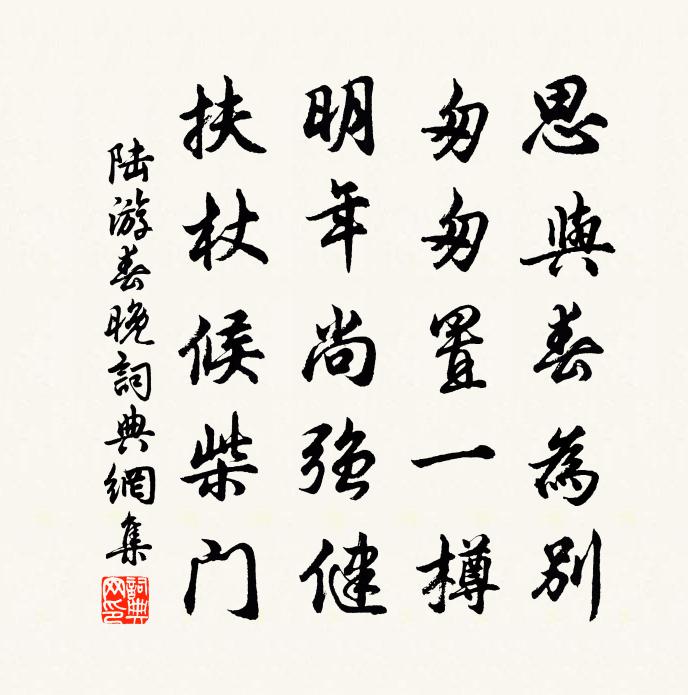 思與春為別
匆匆置一樽
明年尚强健
扶杖候柴門
陆游春晚詞典網集
詞典
网印